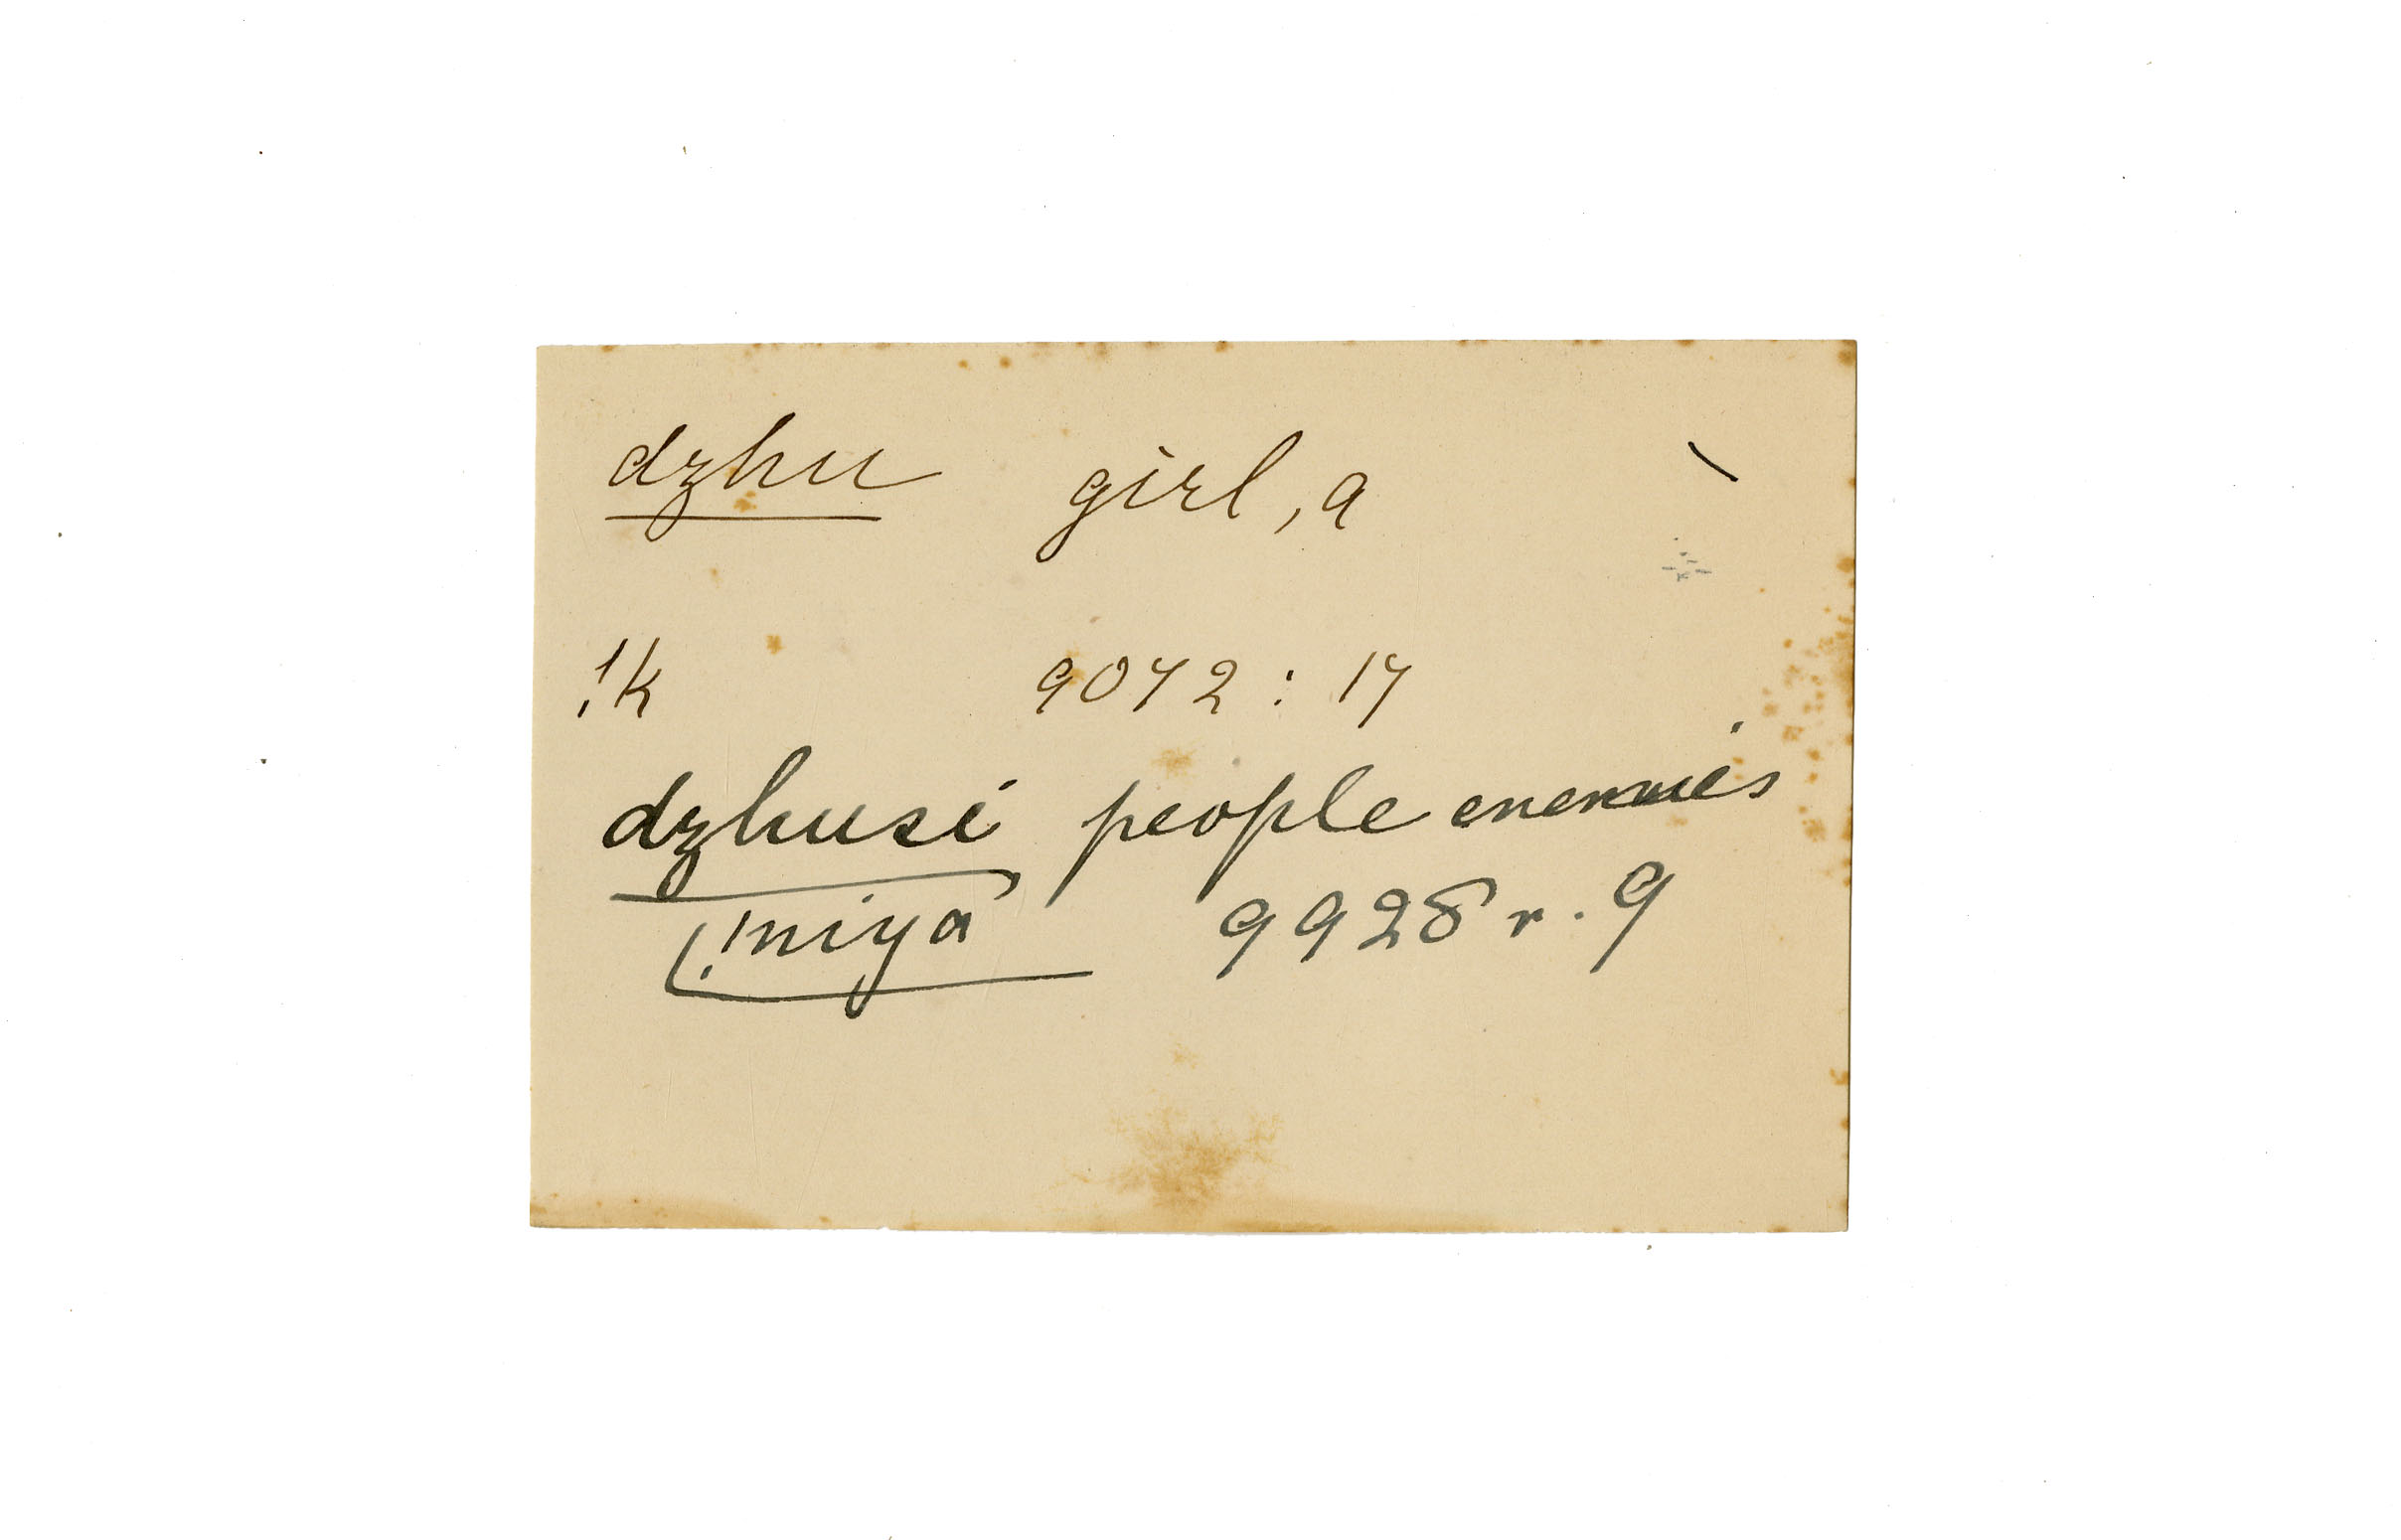 dzhu girl, a
!k 9072 : 17
dzhusi people enemies
!niya 9928 r. 9